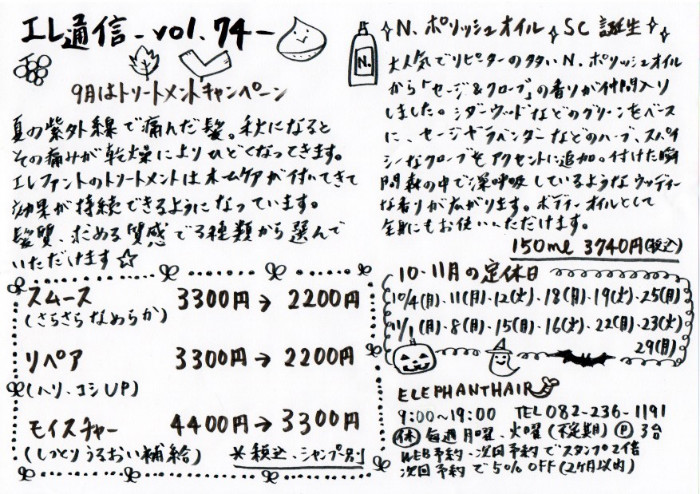 エレ通信 - vol. 74 -
9月はトリートメントキャンペーン
夏の紫外線で痛んだ髪。秋になると
その痛みが乾燥によりひどくなってきます。
エレファントのトリートメントはホームケアが付いてきて
効果が持続できるようになっています。
髪質、求める質感で3種類から選んで
いただけます☆
スムース 3300円→2200円
(さらさらなめらか)
リペア 3300円→2200円
(ハリ、コシUP)
モイスチャー 4400円→3300円
(しっとりうるおい補給) ※税込、シャンプー別
N.
N. ポリッシュオイル SC 誕生
大人気でリピーターの多い N. ポリッシュオイル
から「セージ&クローブ」の香りが仲間入り
しました。シダーウッドなどのグリーンをベース
に、セージやラベンダーなどのハーブ、スパイ
シーなクローブをアクセントに追加。付けた瞬
間森の中で深呼吸しているようなウッディー
な香りが広がります。ボディーオイルとして
全身にもお使いいただけます。
150ml 3740円(税込)
10・11月の定休日
10/4(月)・11(月)・12(火)・18(月)・19(火)・25(月)
11/1(月)・8(月)・15(月)・16(火)・22(月)・23(火)
29(月)
ELEPHANTHAIR
9:00〜19:00 TEL 082-236-1191
休 毎週月曜、火曜(不定期) P 3台
WEB予約、次回予約でスタンプ2倍
次回予約で50% OFF(2ヶ月以内)